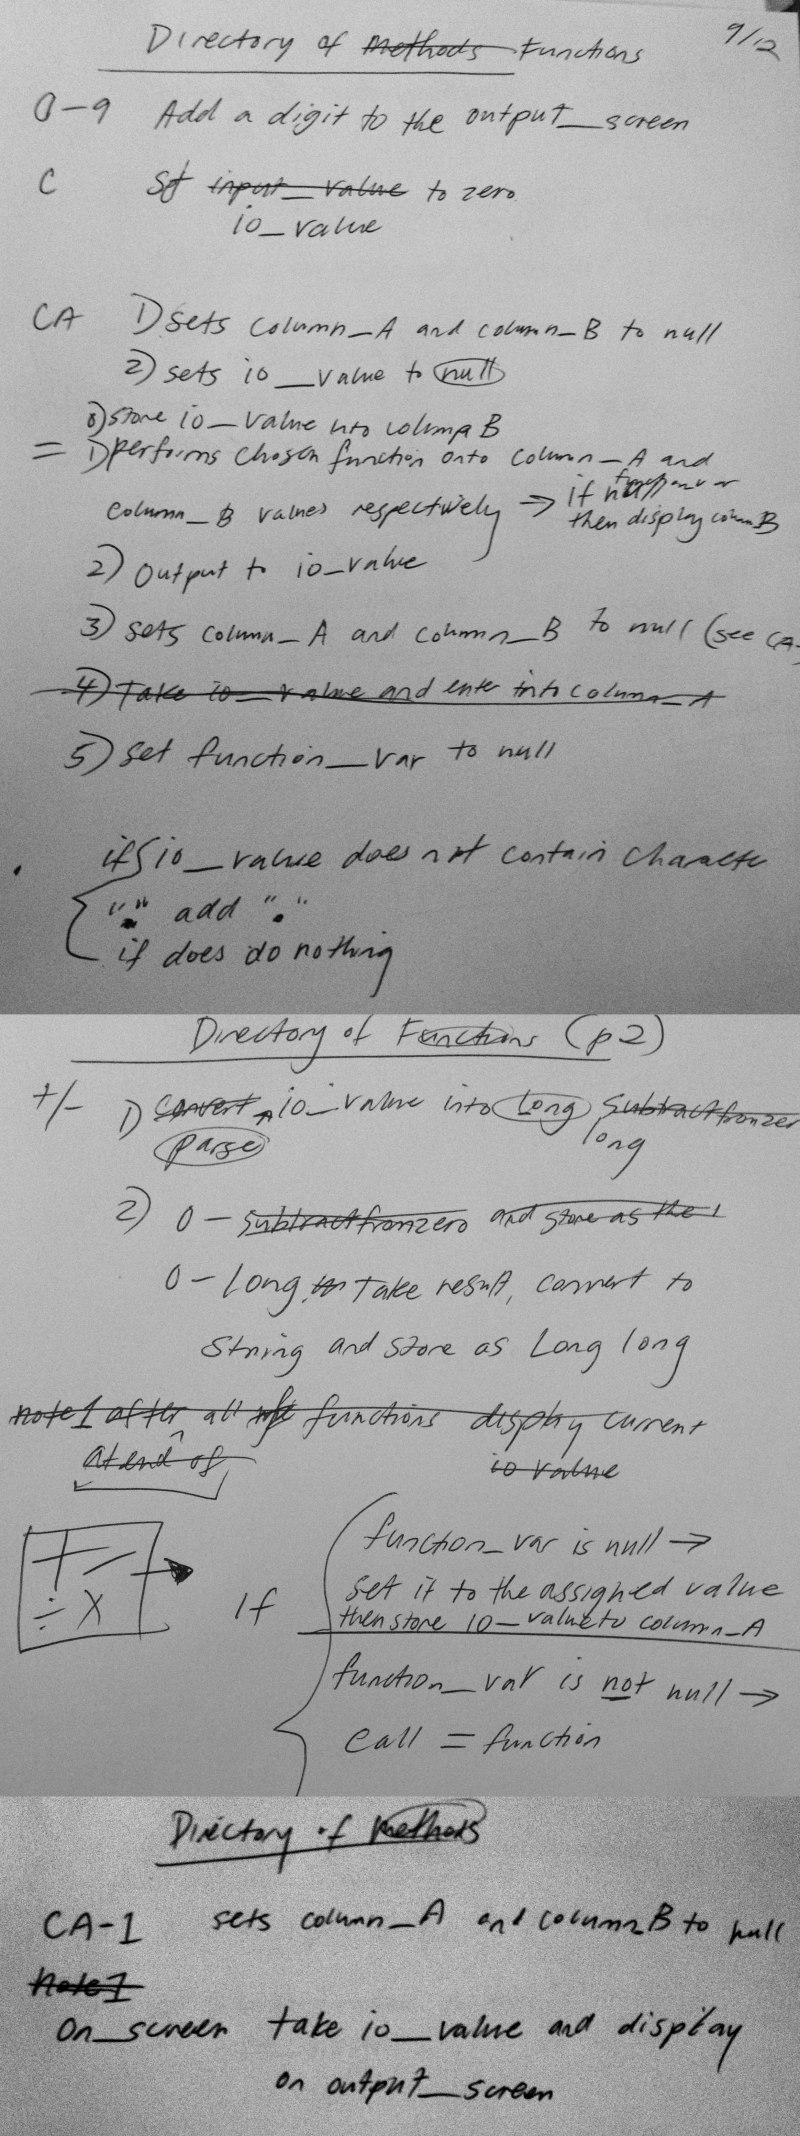 Directory of Methods Functions 9/12
0-9 Add a digit to the output_screen
C Set input_value to zero
io_value
CA 1) sets column_A and column_B to null
2) sets io_value to null
0) store io_value into column B
= 1) performs chosen function onto column_A and
column_B values respectively → if null function var
then display column B
2) Output to io_value
3) sets column_A and column_B to null (see CA-
4) Take io_value and enter into column_A
5) set function_var to null
. if io_value does not contain character
"." add "."
if does do nothing
Directory of Functions (p2)
+/- 1) convert io_value into Long subtract from zero
parse long
2) 0 - subtract from zero and store as the
0 - long Take result, convert to
String and store as Long long
note 1 after all functions display current
at end of io value
+ -
÷ x
If function_var is null →
set it to the assigned value
then store io_value to column_A
function_var is not null →
call = function
Directory of Methods
CA-1 sets column_A and column_B to null
Note 1
On_screen take io_value and display
on output_screen